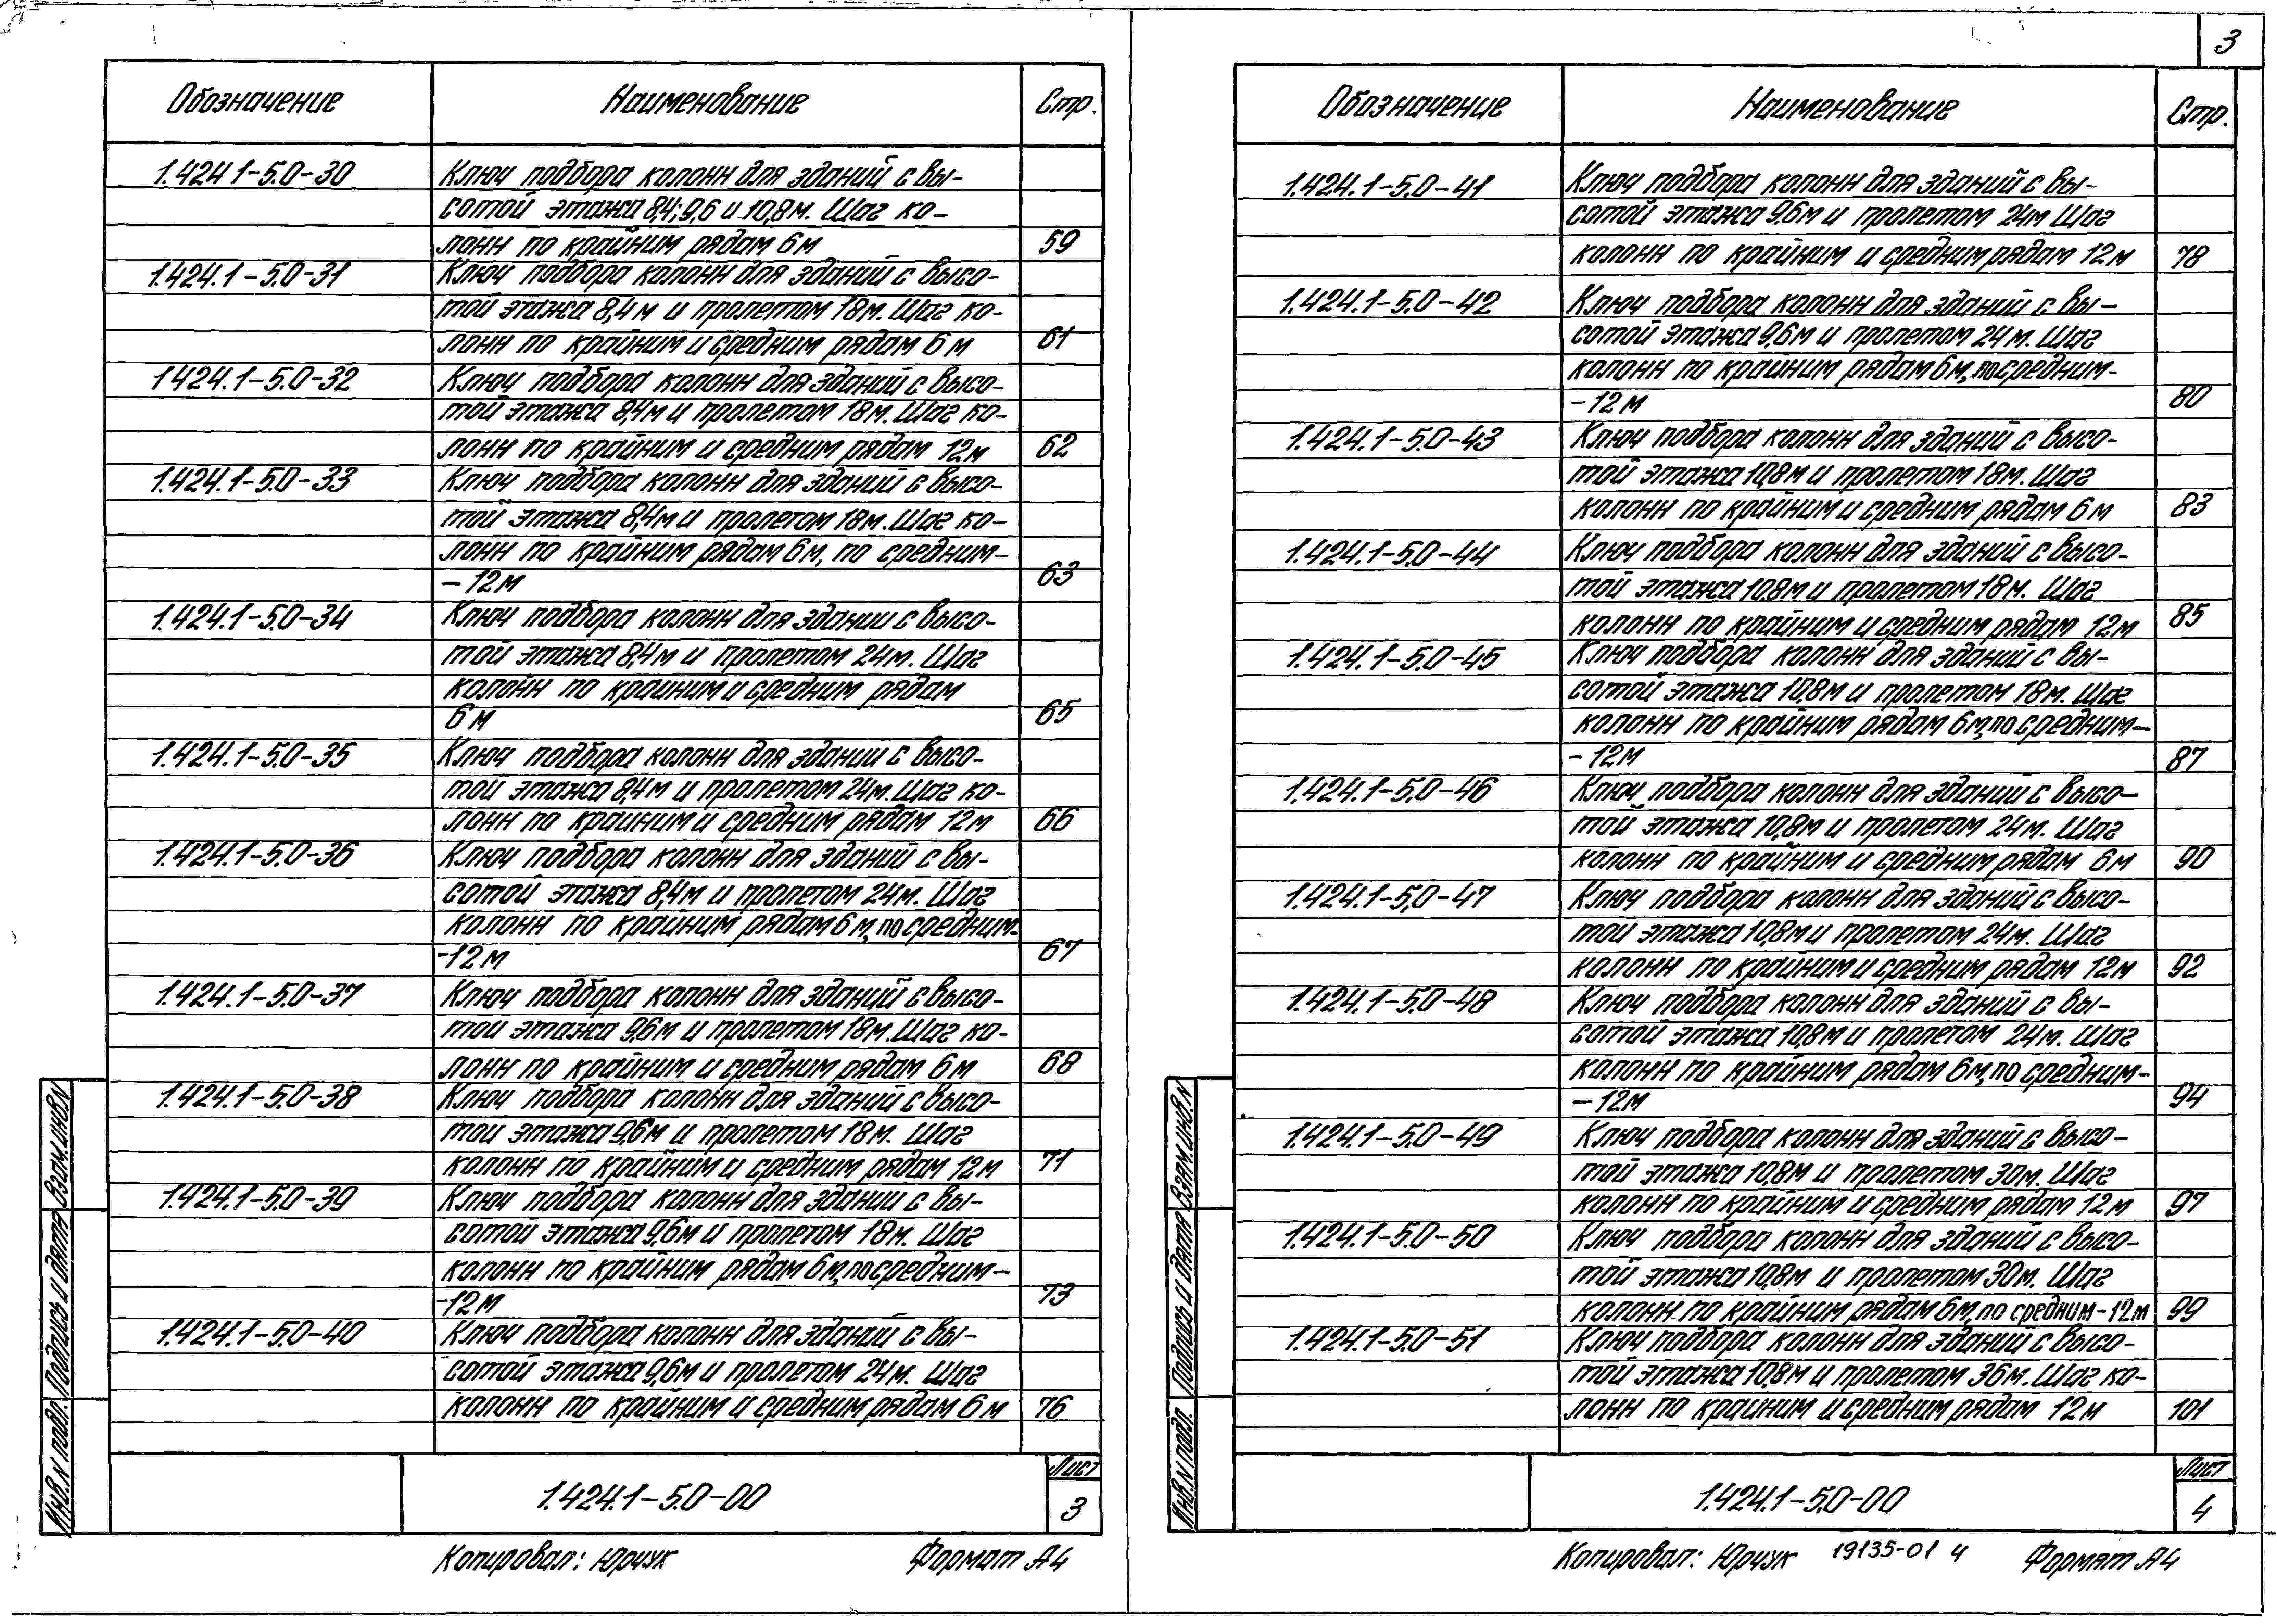 3
Обозначение Наименование Стр.
1.424.1-5.0-30 Ключ подбора колонн для зданий с вы-
сотой этажа 8,4; 9,6 и 10,8м. Шаг ко-
лонн по крайним рядам 6м 59
1.424.1-5.0-31 Ключ подбора колонн для зданий с высо-
той этажа 8,4м и пролетом 18м. Шаг ко-
лонн по крайним и средним рядам 6м 61
1.424.1-5.0-32 Ключ подбора колонн для зданий с высо-
той этажа 8,4м и пролетом 18м. Шаг ко-
лонн по крайним и средним рядам 12м 62
1.424.1-5.0-33 Ключ подбора колонн для зданий с высо-
той этажа 8,4м и пролетом 18м. Шаг ко-
лонн по крайним рядам 6м, по средним-
- 12м 63
1.424.1-5.0-34 Ключ подбора колонн для зданий с высо-
той этажа 8,4м и пролетом 24м. Шаг
колонн по крайним и средним рядам
6м 65
1.424.1-5.0-35 Ключ подбора колонн для зданий с высо-
той этажа 8,4м и пролетом 24м. Шаг ко-
лонн по крайним и средним рядам 12м 66
1.424.1-5.0-36 Ключ подбора колонн для зданий с вы-
сотой этажа 8,4м и пролетом 24м. Шаг
колонн по крайним рядам 6м, по средним-
-12м 67
1.424.1-5.0-37 Ключ подбора колонн для зданий с высо-
той этажа 9,6м и пролетом 18м. Шаг ко-
лонн по крайним и средним рядам 6м 68
1.424.1-5.0-38 Ключ подбора колонн для зданий с высо-
той этажа 9,6м и пролетом 18м. Шаг
колонн по крайним и средним рядам 12м 71
1.424.1-5.0-39 Ключ подбора колонн для зданий с вы-
сотой этажа 9,6м и пролетом 18м. Шаг
колонн по крайним рядам 6м, по средним-
-12м 73
1.424.1-5.0-40 Ключ подбора колонн для зданий с вы-
сотой этажа 9,6м и пролетом 24м. Шаг
колонн по крайним и средним рядам 6м 76
Инв.N подл. Подпись и дата Взам.инв.N
1.424.1-5.0-00
Лист
3
Копировал: Юрчук Формат А4
Обозначение Наименование Стр.
1.424.1-5.0-41 Ключ подбора колонн для зданий с вы-
сотой этажа 9,6м и пролетом 24м Шаг
колонн по крайним и средним рядам 12м 78
1.424.1-5.0-42 Ключ подбора колонн для зданий с вы-
сотой этажа 9,6м и пролетом 24м. Шаг
колонн по крайним рядам 6м, по средним-
-12м 80
1.424.1-5.0-43 Ключ подбора колонн для зданий с высо-
той этажа 10,8м и пролетом 18м. Шаг
колонн по крайним и средним рядам 6м 83
1.424.1-5.0-44 Ключ подбора колонн для зданий с высо-
той этажа 10,8м и пролетом 18м. Шаг
колонн по крайним и средним рядам 12м 85
1.424.1-5.0-45 Ключ подбора колонн для зданий с вы-
сотой этажа 10,8м и пролетом 18м. Шаг
колонн по крайним рядам 6м, по средним-
-12м 87
1.424.1-5.0-46 Ключ подбора колонн для зданий с высо-
той этажа 10,8м и пролетом 24м. Шаг
колонн по крайним и средним рядам 6м 90
1.424.1-5.0-47 Ключ подбора колонн для зданий с высо-
той этажа 10,8м и пролетом 24м. Шаг
колонн по крайним и средним рядам 12м 92
1.424.1-5.0-48 Ключ подбора колонн для зданий с вы-
сотой этажа 10,8м и пролетом 24м. Шаг
колонн по крайним рядам 6м, по средним-
-12м 94
1.424.1-5.0-49 Ключ подбора колонн для зданий с высо-
той этажа 10,8м и пролетом 30м. Шаг
колонн по крайним и средним рядам 12м 97
1.424.1-5.0-50 Ключ подбора колонн для зданий с высо-
той этажа 10,8м и пролетом 30м. Шаг
колонн по крайним рядам 6м, по средним-12м 99
1.424.1-5.0-51 Ключ подбора колонн для зданий с высо-
той этажа 10,8м и пролетом 36м. Шаг ко-
лонн по крайним и средним рядам 12м 101
Инв.N подл. Подпись и дата Взам.инв.N
1.424.1-5.0-00
Лист
4
Копировал: Юрчук 19135-01 4 Формат А4